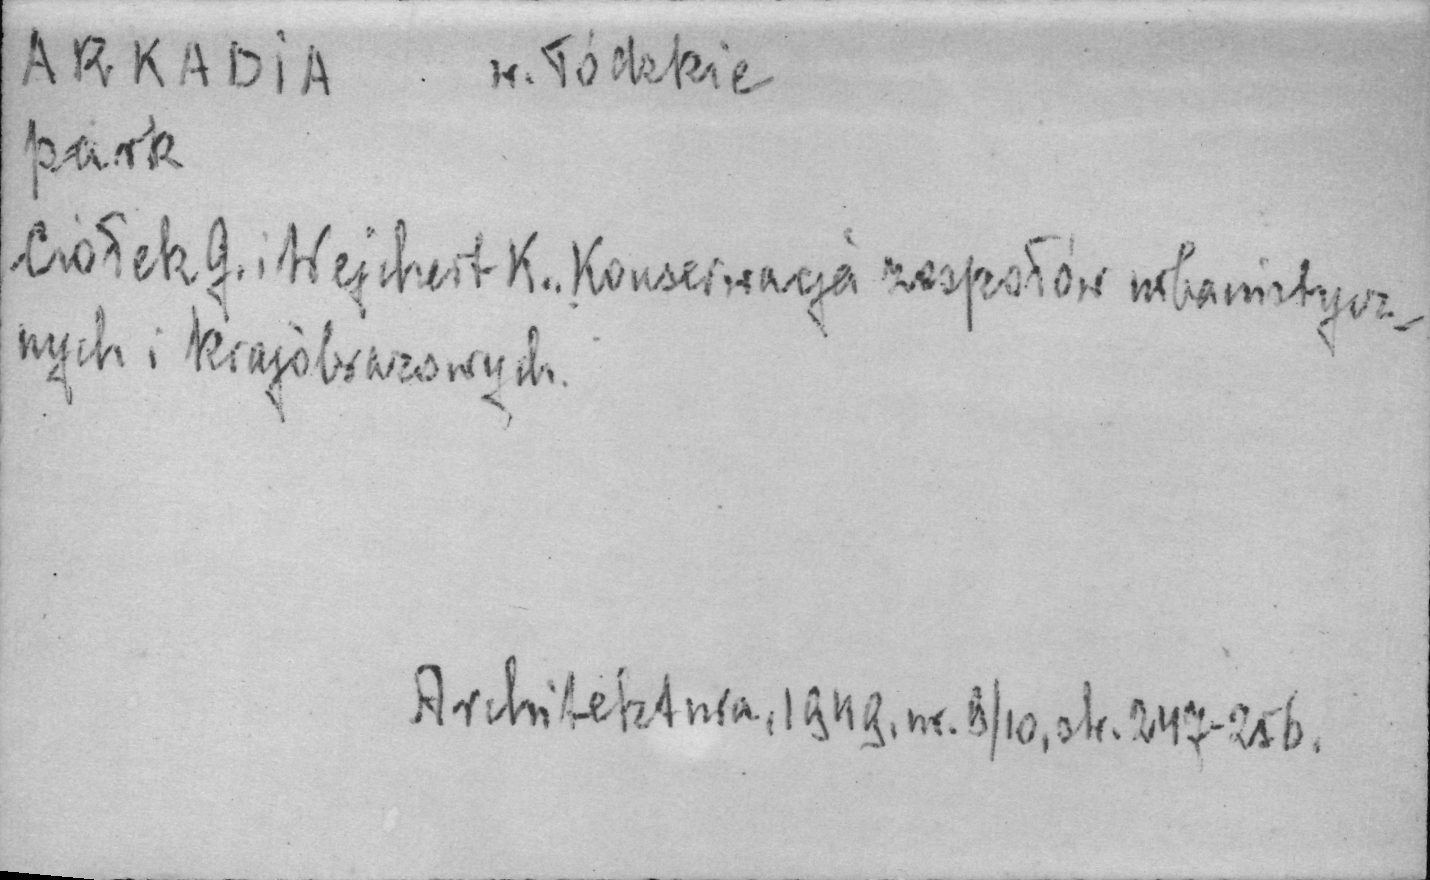 ARKADIA w. łódzkie
park
Ciołek G. i Wejchert K.. Konserwacja zespołów urbanistycz-
nych i krajobrazowych.
Architektura, 1949, nr. 9/10, str. 247-256.